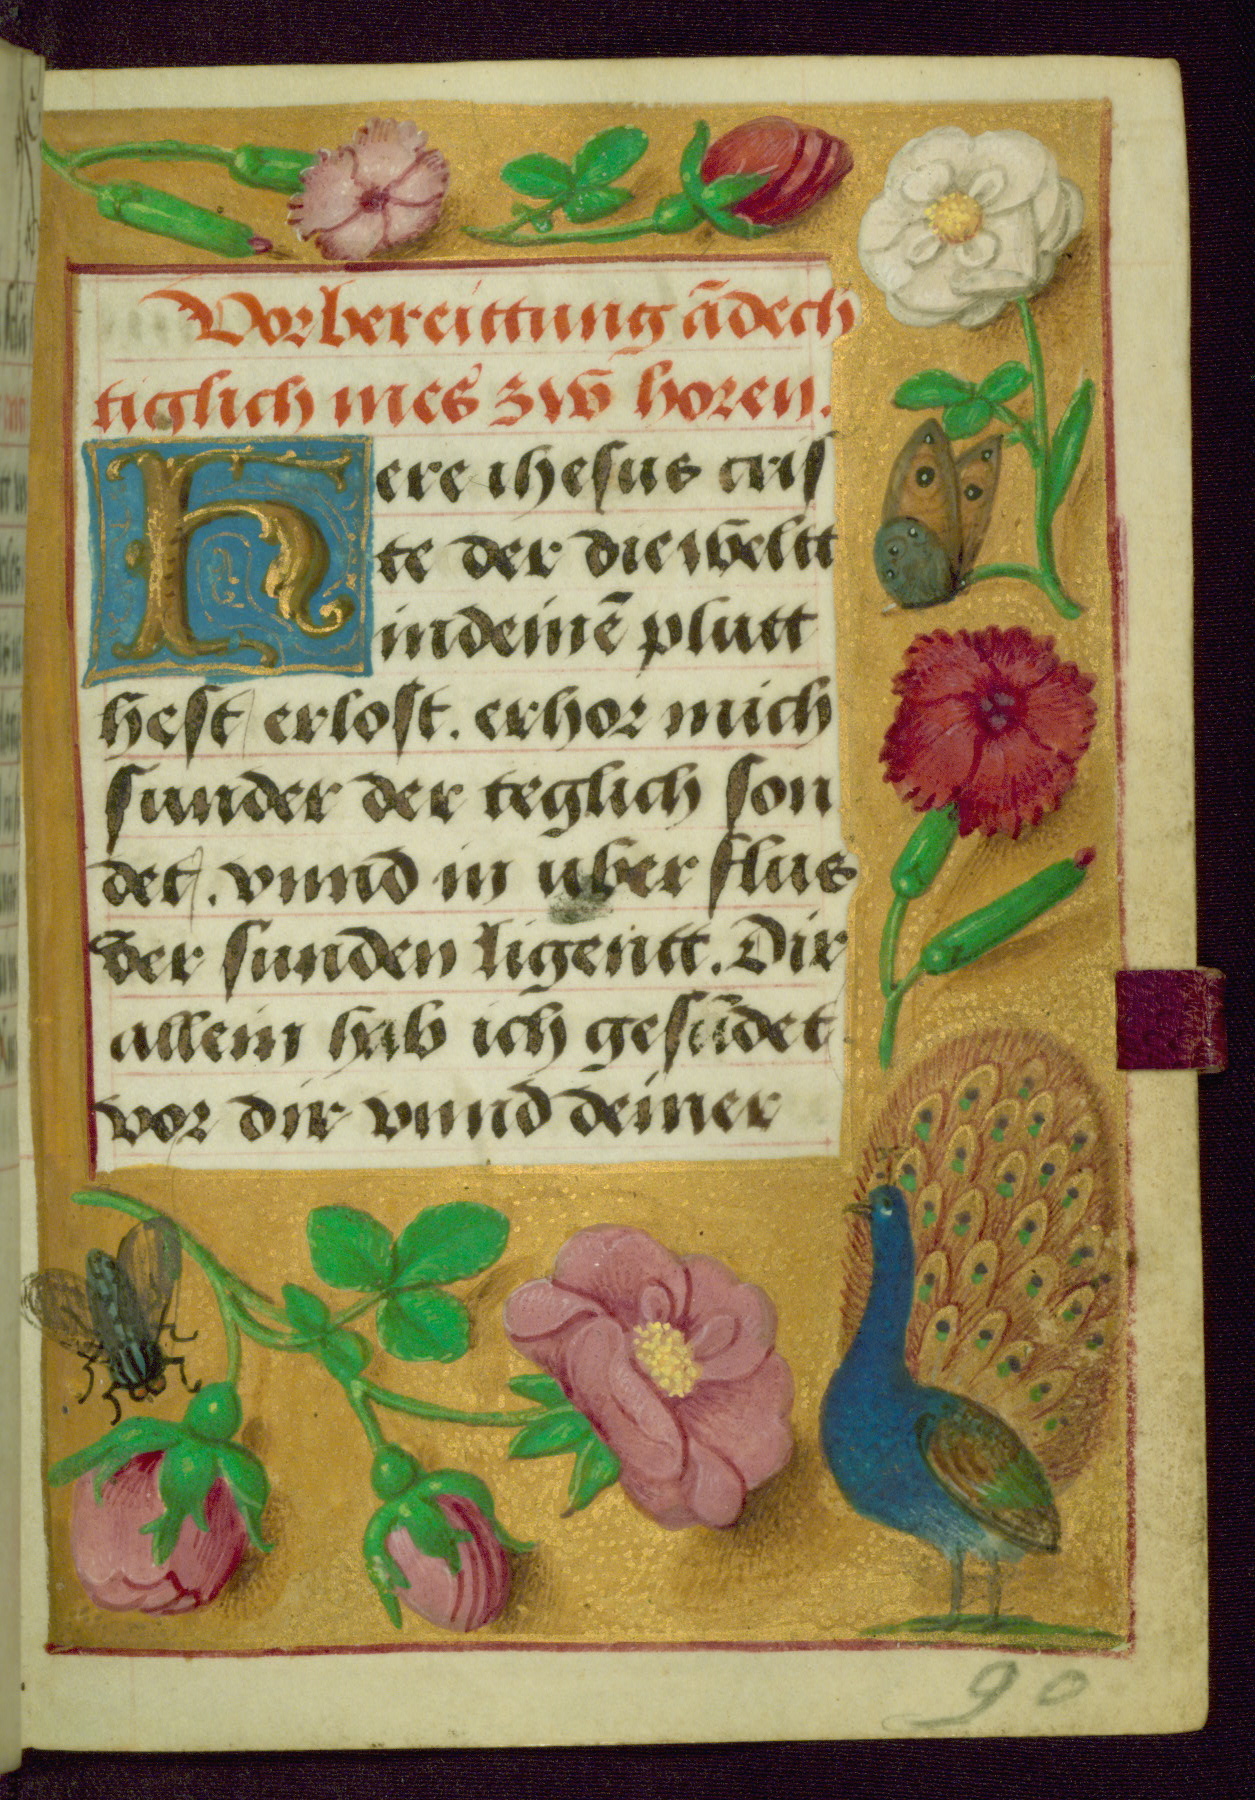 Vorbereittung ādech
tiglich mes zw horen.
Here ihesus cris
te der die weltt
in deinē plutt
hest erlost. erhor mich
sunder der teglich son
det. vnnd in uber flus
der sunden ligentt. Dir
allein hab ich gesūdet
vor dir vnnd deiner
90